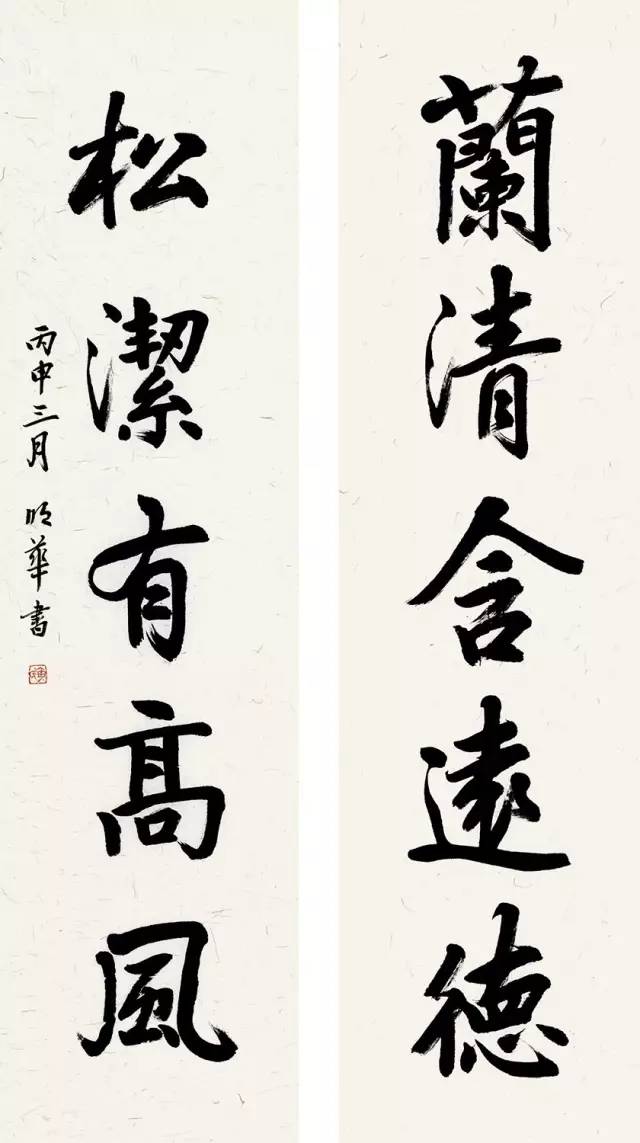 蘭清含遠德
松潔有高風
丙申三月 明華書